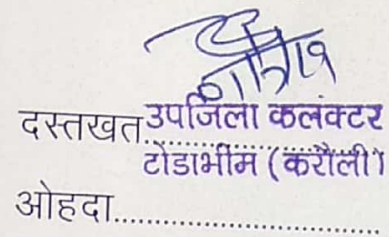 दस्तखत उपजिला कलक्टर
टोडाभीम (करौली)
ओहदा....................................